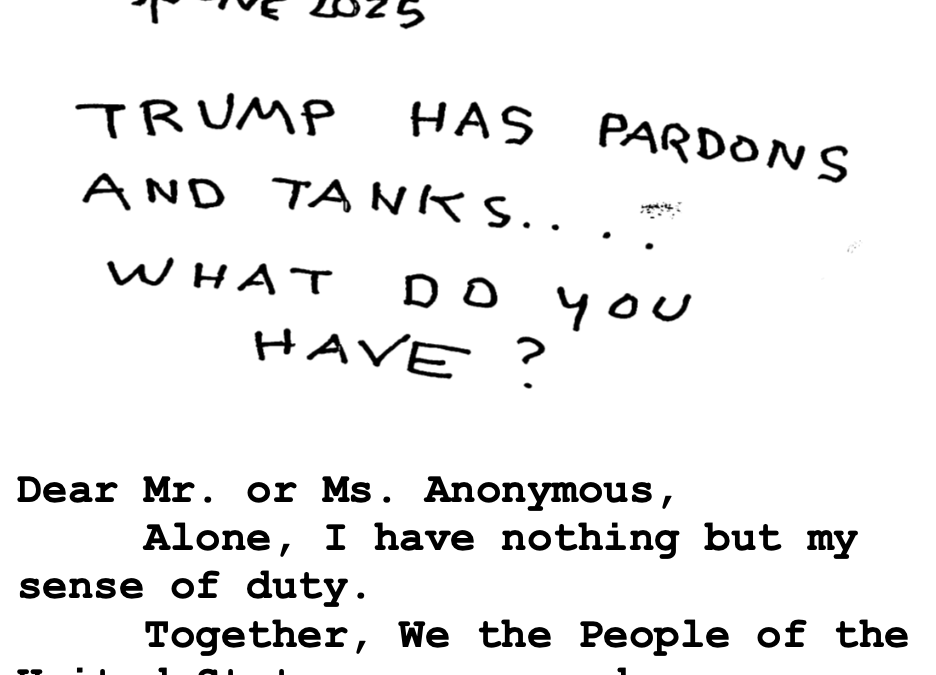 JUNE 2025
TRUMP HAS PARDONS
AND TANKS....
WHAT DO YOU
HAVE?
Dear Mr. or Ms. Anonymous,
Alone, I have nothing but my
sense of duty.
Together, We the People of the